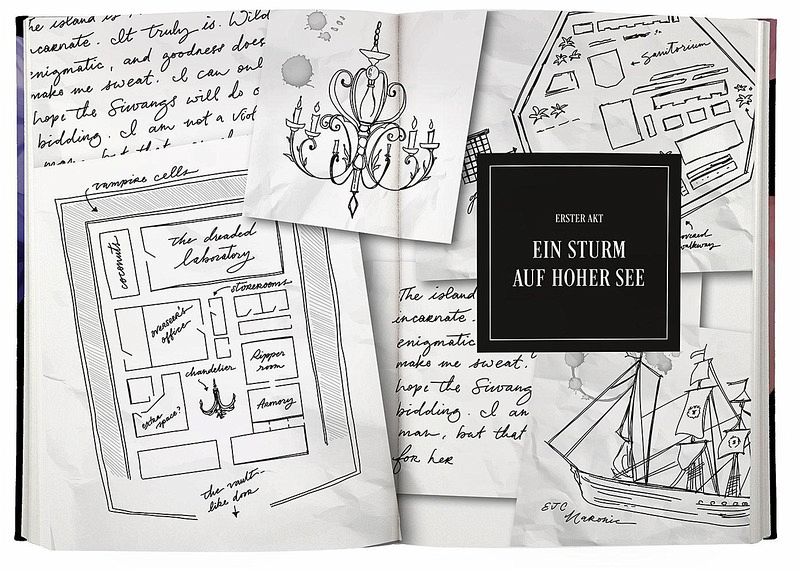 he island is
ncarnate. It truly is. Wild
enigmatic, and goodness does
make me sweat. I can onl
hope the Siwangs will do
bidding. I am not a viol
man, but that
vampire cells
coconuts
the dreaded
laboratory
storerooms
overseer's
office
Ripper
room
chandelier
Armory
extra
space?
the vault-
like door
Sanitorium
covered
walkway
ERSTER AKT
EIN STURM
AUF HOHER SEE
The island
incarnate.
enigmatic
make me sweat.
hope the Siwang
bidding. I am
man, but that
for her
EJC
Naronic